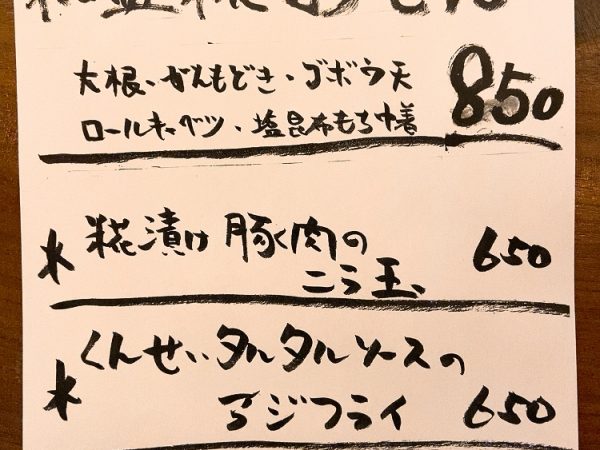 大根、がんもどき、ゴボウ天 850
ロールキャベツ、塩昆布もち巾着
糀漬け 豚肉の
ニラ玉、 650
くんせいタルタルソースの
アジフライ 650